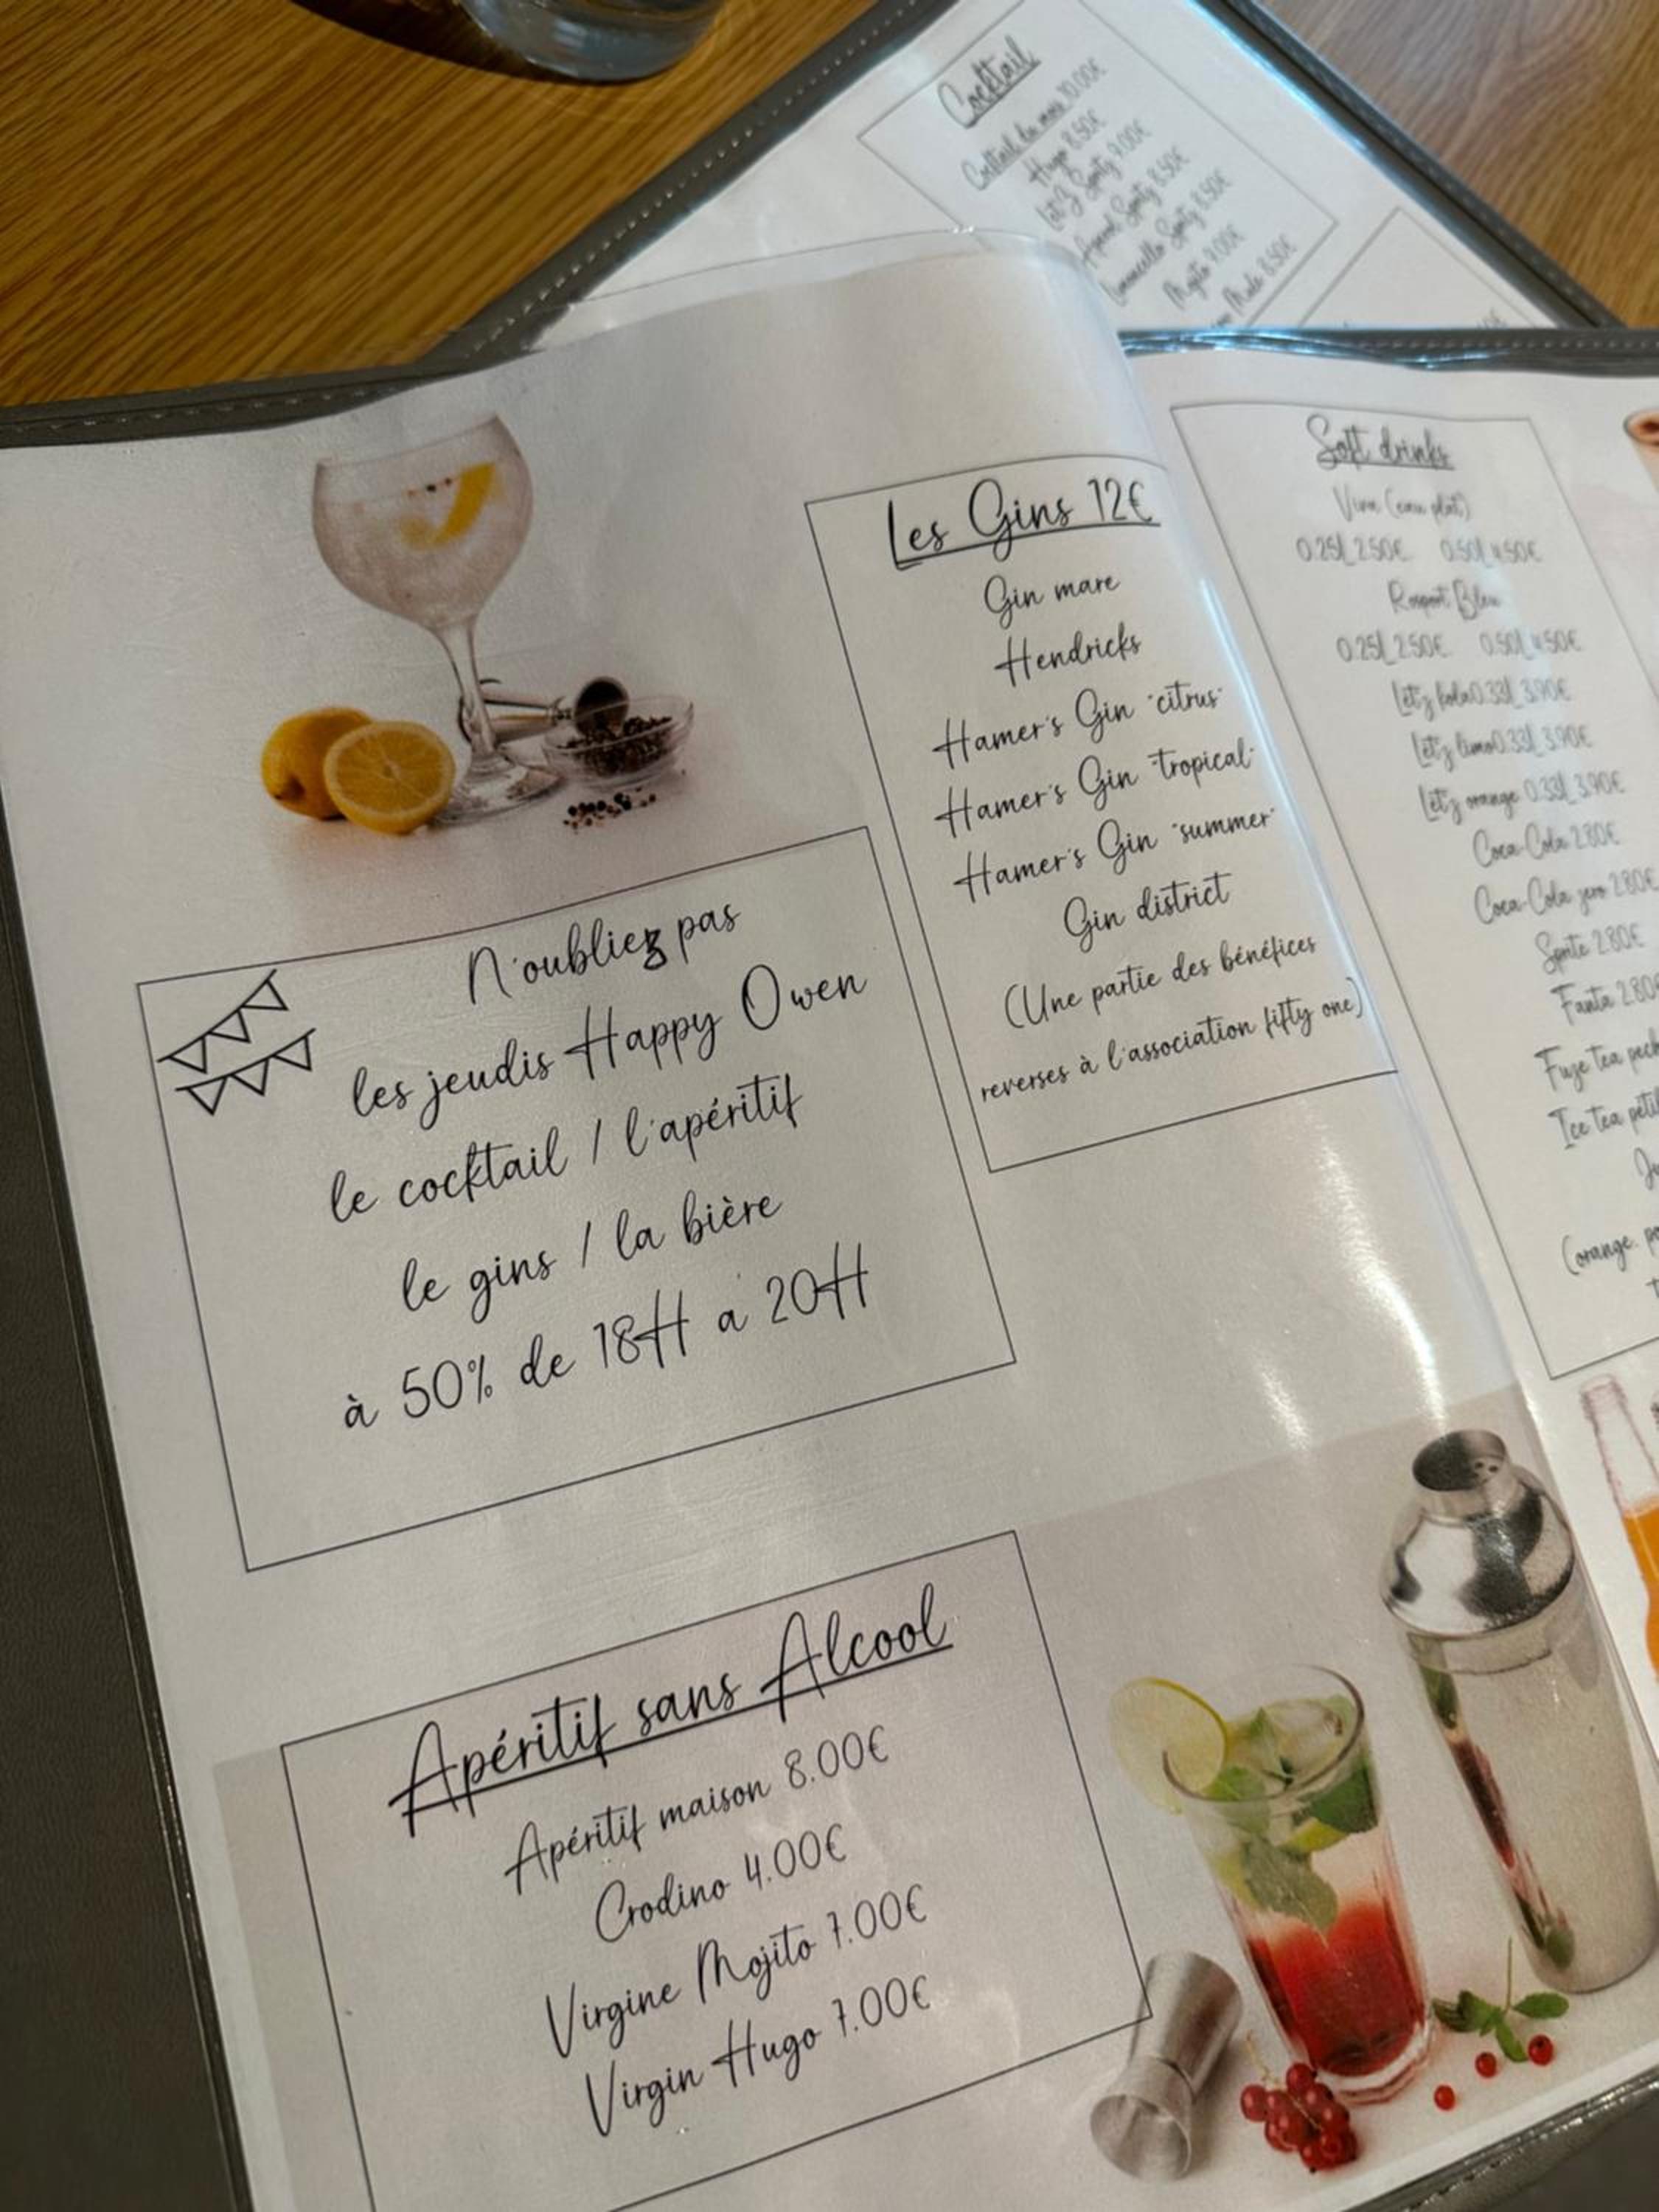 Cocktail
Cocktail du mois 10.00€
Hugo 8.50€
Let'z Spritz 9.00€
Spritz 8.50€
Limoncello Spritz 8.50€
Mojito 9.00€
Mule 8.50€
Les Gins 12€
Gin mare
Hendricks
Hamer's Gin "citrus"
Hamer's Gin "tropical"
Hamer's Gin "summer"
Gin district
(Une partie des bénéfices
reverses à l'association fifty one)
N'oubliez pas
les jeudis Happy Owen
le cocktail / l'apéritif
le gins / la bière
à 50% de 18H a 20H
Apéritif sans Alcool
Apéritif maison 8.00€
Crodino 4.00€
Virgine Mojito 7.00€
Virgin Hugo 7.00€
Soft drinks
Viva (eau plat)
0.25L 2.50€ 0.50L 4.50€
Rosport Bleu
0.25L 2.50€ 0.50L 4.50€
Let'z kola 0.33L 3.90€
Let'z limo 0.33L 3.90€
Let'z orange 0.33L 3.90€
Coca-Cola 2.80€
Coca-Cola zero 2.80€
Sprite 2.80€
Fanta 2.80€
Fuze tea
Ice tea
(orange.